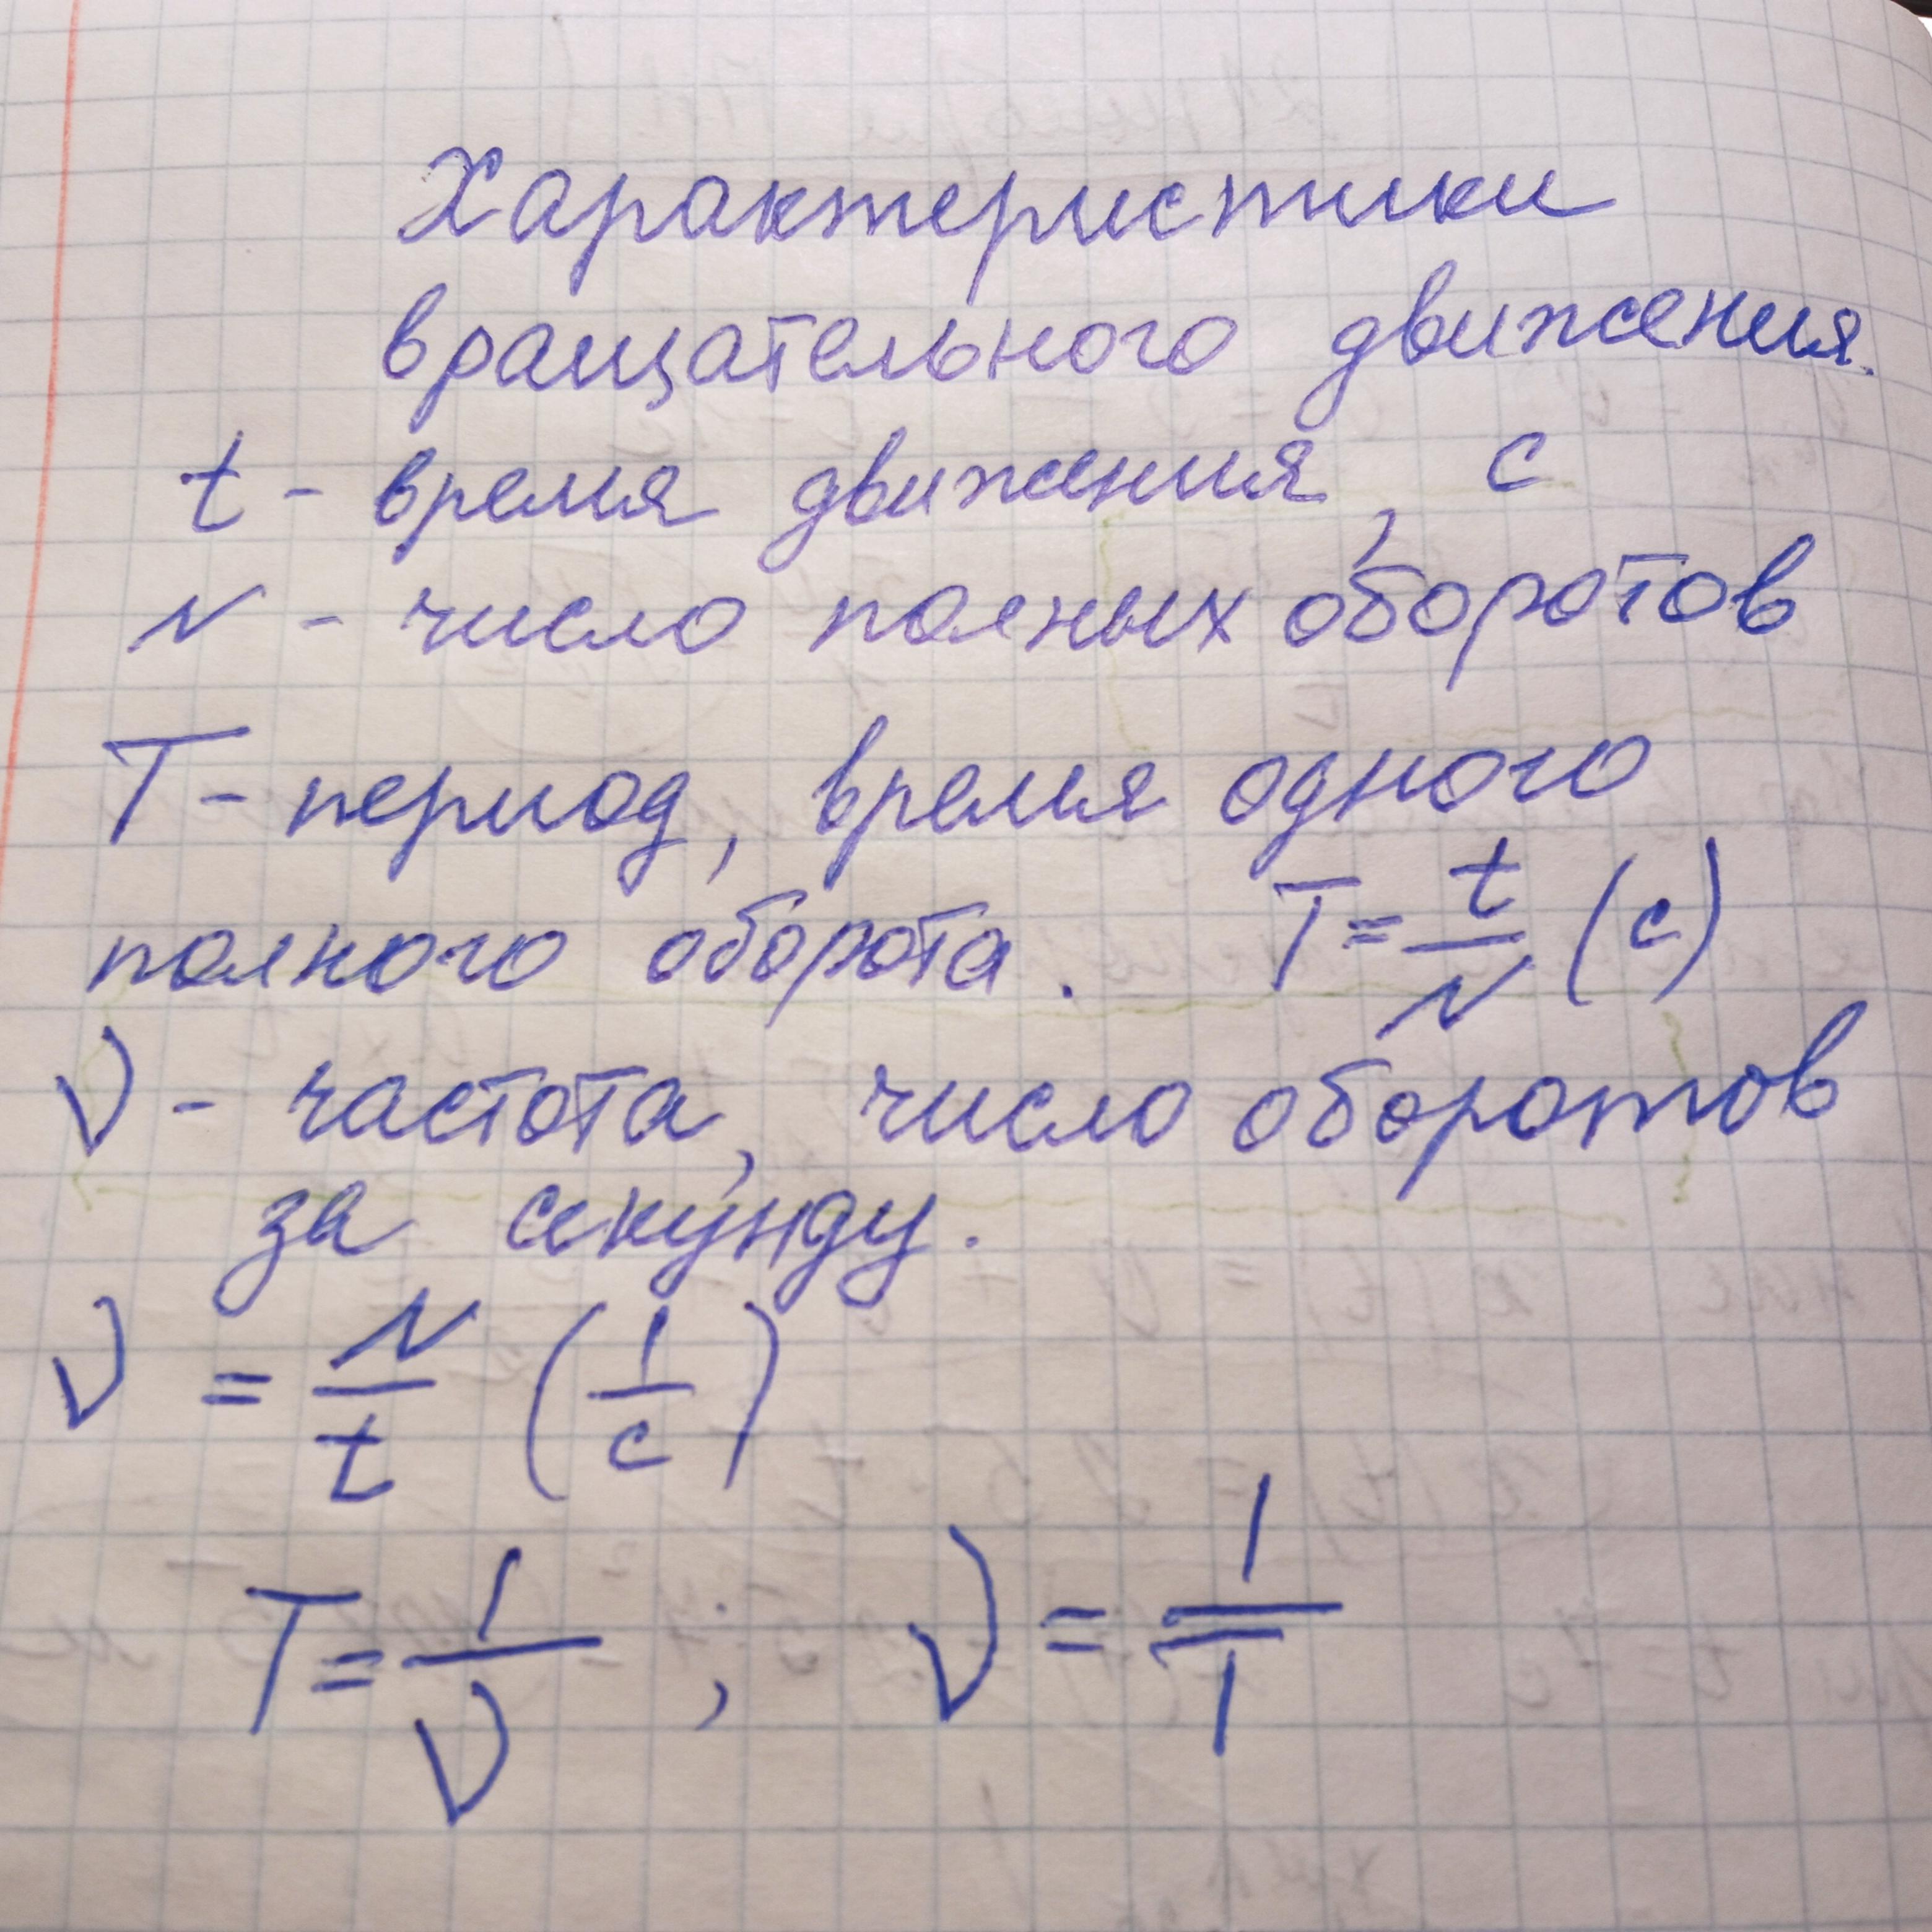 Характеристики
вращательного движения.
t - время движения, с
N - число полных оборотов
T - период, время одного
полного оборота. T = t/N (с)
ν - частота, число оборотов
за секунду.
ν = N/t (1/с)
T = 1/ν ; ν = 1/T